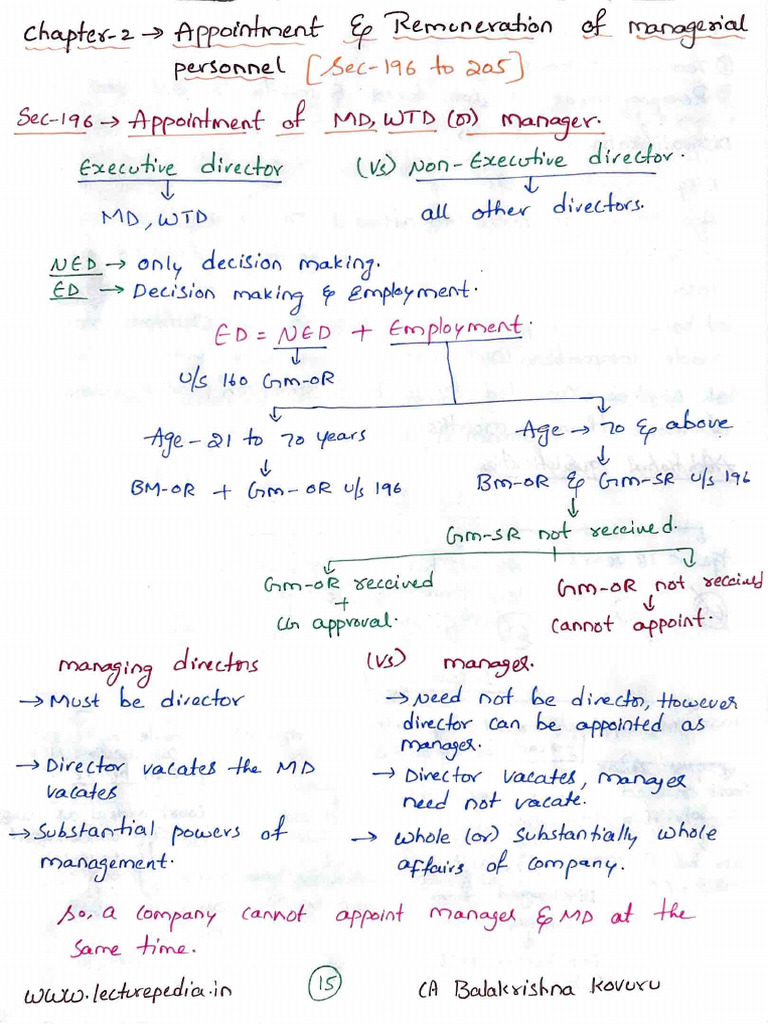 Chapter-2 → Appointment & Remuneration of managerial
personnel [Sec-196 to 205]
Sec-196 → Appointment of MD, WTD (or) manager.
Executive director (Vs) Non-Executive director.
MD, WTD
all other directors.
NED → only decision making.
ED → Decision making & Employment.
ED = NED + Employment.
u/s 160 Gm-OR
Age - 21 to 70 years
Age → 70 & above
BM-OR + Gm-OR u/s 196
Bm-OR & Gm-SR u/s 196
Gm-SR not received.
Gm-OR received
+
CG approval.
Gm-OR not received
cannot appoint.
managing directors (Vs) manager.
→ Must be director
→ Need not be director, However
director can be appointed as
manager.
→ Director vacates the MD
vacates
→ Director vacates, manager
need not vacate.
→ Substantial powers of
management.
→ whole (or) substantially whole
affairs of company.
So, a company cannot appoint manager & MD at the
same time.
www.lecturepedia.in 15 CA Balakrishna Kovuru